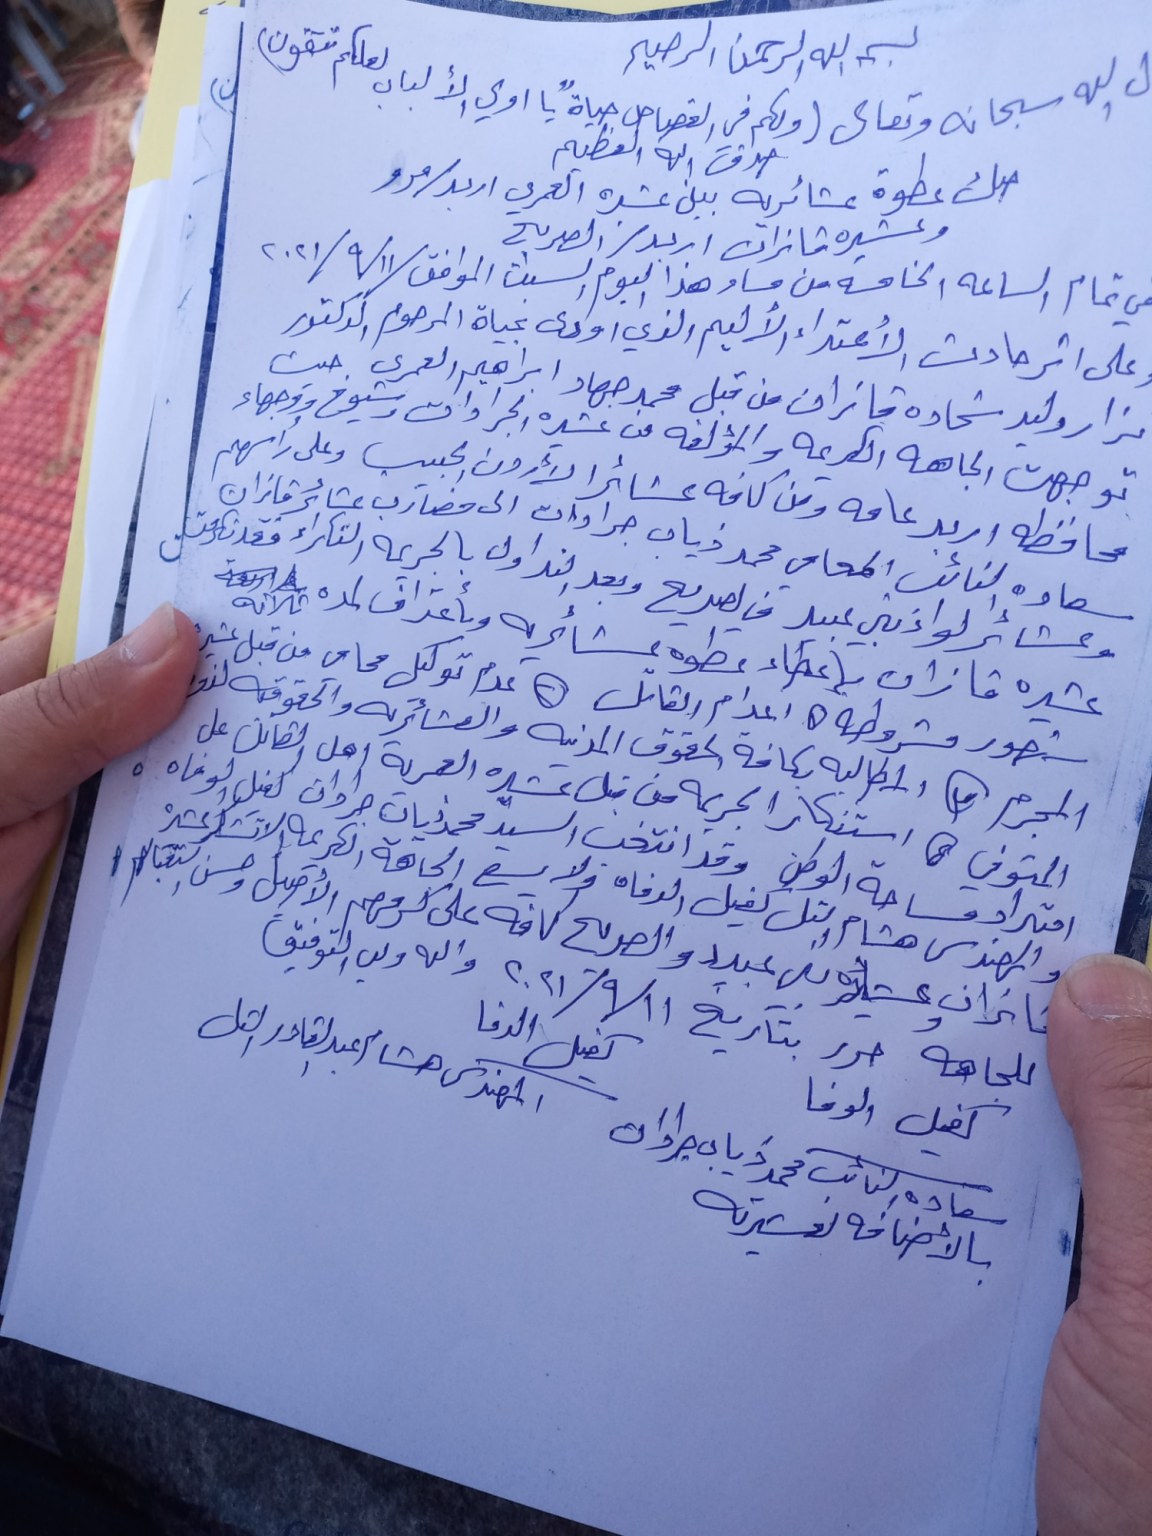 بسم الله الرحمن الرحيم
ل الله سبحانه وتعالى (ولكم في القصاص حياة يا اولي الألباب لعلكم تتقون)
صدق الله العظيم
صك عطوة عشائريه بين عشيره العمري اربد/
وعشيره قازان اربد/الصريح
في تمام الساعه الخامسه من مساء هذا اليوم السبت الموافق ٢٠٢١/٩/١١
وعلى اثر حادث الأعتداء الأليم الذي اودى بحياة المرحوم الدكتور
نزار وليد شحاده قازان من قبل محمد جهاد ابراهيم العمري حيث
توجهت الجاهه الكريمه والمؤلفه من عشيره الجرادات وشيوخ ووجهاء
محافظه اربد عامه ومن كافه عشائر الأردن الحبيب وعلى رأسهم
سعاده النائب المحامي محمد ذياب جرادات الى مضارب عشائر قازان
وعشائر لواء بني عبيد في الصريح وبعد التداول بالجريمه النكراء فقد تكرمت
عشيره قازان بإعطاء عطوه عشائريه وبأعتراف لمده ثلاثه
شهور مشروطه ١ اعدام القاتل ٢ عدم توكيل محامي من قبل عشيرة
المجرم ٣ المطالبه بكافة الحقوق المدنيه والعشائريه والحقوقيه لذوي
المتوفي ٤ استنكار الجريمه من قبل عشيره العمري اهل القاتل على
امتداد مساحة الوطن وقد انتخب السيد محمد ذياب جرادات كفيل الوفاه
والمهندس هشام التل كفيل الدفاه ولا يسع الجاهة الكريمه الا تشكر عشيرة
قازان وعشائر بني عبيد والصريح كافه على كرمهم الأصيل وحسن استقبالهم
للجاهه حرر بتاريخ ٢٠٢١/٩/١١ والله ولي التوفيق
كفيل الدفا
المهندس هشام عبدالقادر التل
كفيل الوفا
سعاده النائب محمد ذياب جرادات
بالأضافه لعشيرته